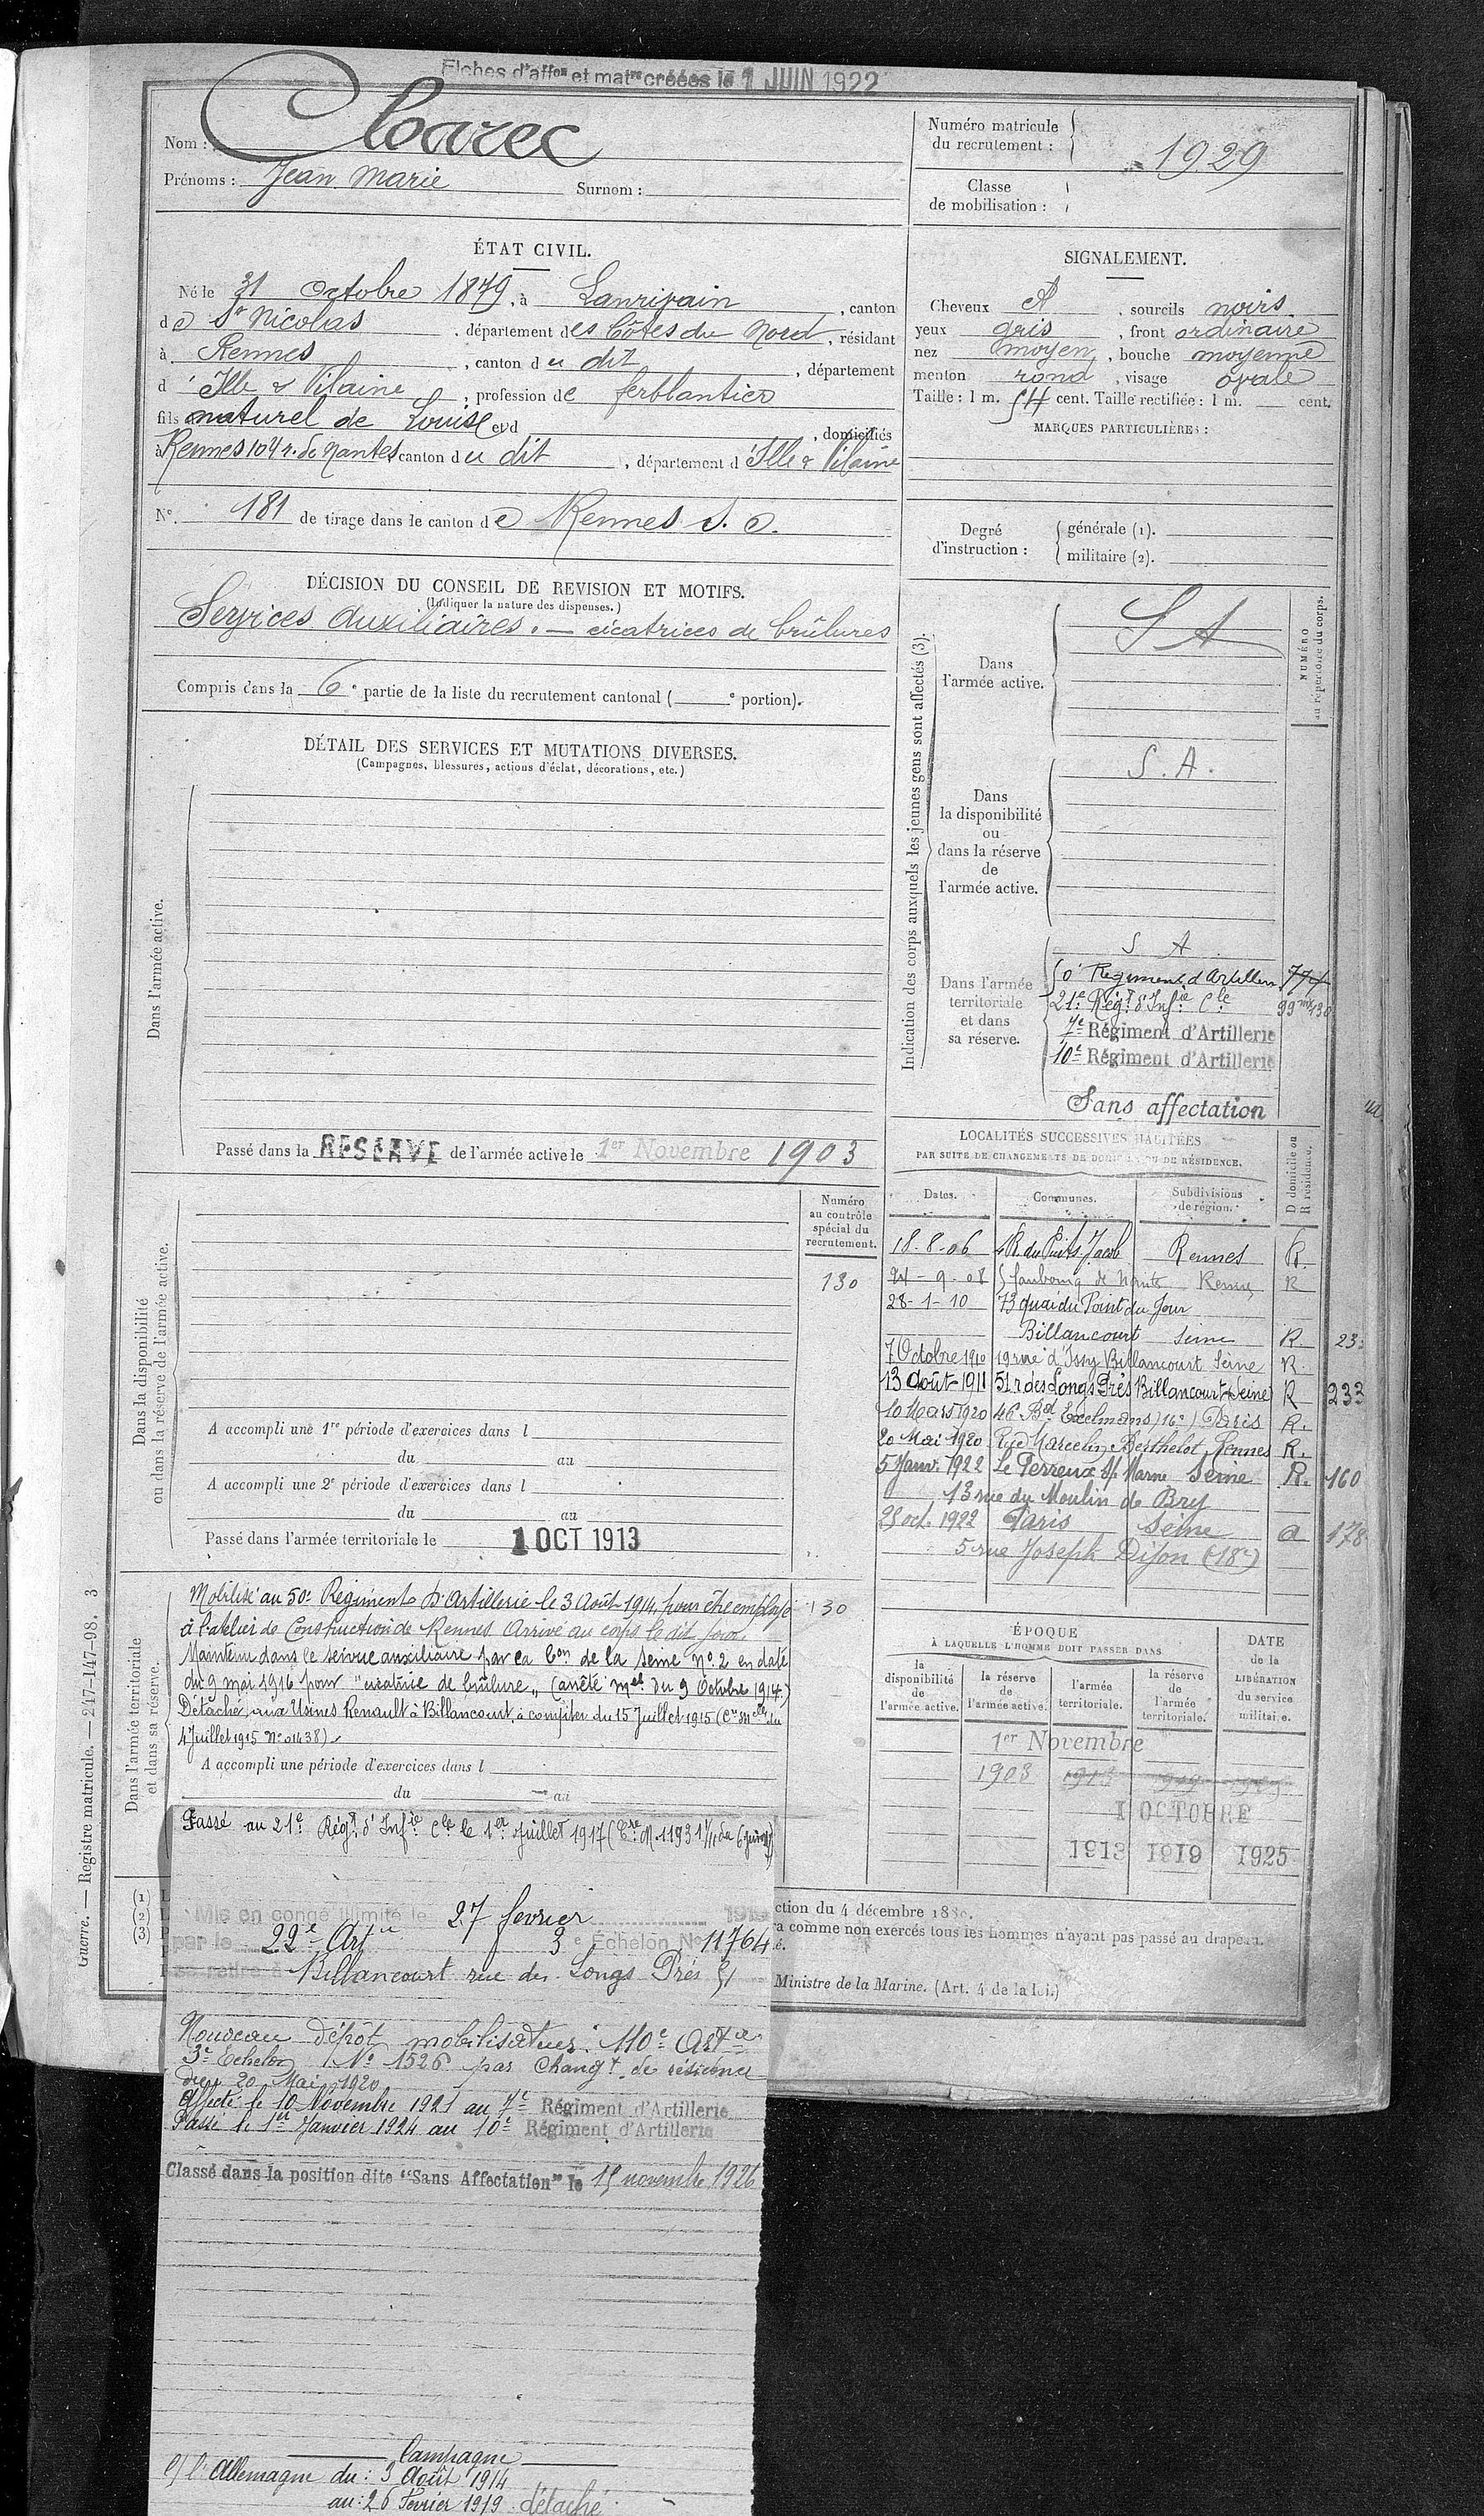 Fiches d'aff^on et mat^re créées le 1 JUIN 1922
Nom : Cloarec
Prénoms : Jean Marie Surnom :
Numéro matricule du recrutement : 1929
Classe de mobilisation :
ÉTAT CIVIL.
Né le 31 Octobre 1879, à Lanrivain, canton
de St Nicolas, département des Côtes du Nord, résidant
à Rennes, canton du dit, département
d'Ille & Vilaine, profession de ferblantier
fils naturel de Louise et d , domiciliés
à Rennes 104 r. de Nantes canton du dit, département d'Ille & Vilaine
N° 181 de tirage dans le canton de Rennes S. O.
SIGNALEMENT.
Cheveux et, sourcils noirs
yeux gris, front ordinaire
nez moyen, bouche moyenne
menton rond, visage ovale
Taille : 1 m. 54 cent. Taille rectifiée : 1 m. cent.
MARQUES PARTICULIÈRES :
Degré d'instruction : générale (1).
militaire (2).
DÉCISION DU CONSEIL DE REVISION ET MOTIFS.
(Indiquer la nature des dispenses.)
Services Auxiliaires. — cicatrices de brûlures
Compris dans la 6e partie de la liste du recrutement cantonal ( e portion).
DÉTAIL DES SERVICES ET MUTATIONS DIVERSES.
(Campagnes, blessures, actions d'éclat, décorations, etc.)
Dans l'armée active.
Passé dans la RESERVE de l'armée active le 1er Novembre 1903
Indication des corps auxquels les jeunes gens sont affectés (3).
NUMÉRO au répertoire du corps.
Dans l'armée active.
S A
Dans la disponibilité ou dans la réserve de l'armée active.
S. A.
Dans l'armée territoriale et dans sa réserve.
S A
50e Régiment d'Artillerie 774
21e Rég^t d'Inf^ie C^le 99
7e Régiment d'Artillerie
10e Régiment d'Artillerie
Sans affectation
LOCALITÉS SUCCESSIVES HABITÉES
PAR SUITE DE CHANGEMENTS DE DOMICILE OU DE RÉSIDENCE.
D domicile ou R résidence.
Dates. Communes. Subdivisions de région.
18-8-06 4 R. du Puits Jacob Rennes R.
24-9-08 faubourg de Nantes Rennes R
28-1-10 73 quai du Point du Jour
Billancourt Seine R 23
7 Octobre 1910 19 rue d'Issy Billancourt Seine R.
13 Août 1911 51 r des Longs Prés Billancourt (Seine) R 233
10 Mars 1920 46 Bd Exelmans (16e) Paris R.
20 Mai 1920 Rue Marcelin Berthelot Rennes R.
5 Janv. 1922 Le Perreux s/ Marne Seine R. 160
13 rue du Moulin de Bry
25 oct. 1922 Paris Seine a 178
5 rue Joseph Dijon (18e)
Dans la disponibilité ou dans la réserve de l'armée active.
Numéro au contrôle spécial du recrutement.
130
A accompli une 1re période d'exercices dans l
du au
A accompli une 2e période d'exercices dans l
du au
Passé dans l'armée territoriale le 1 OCT 1913
Dans l'armée territoriale et dans sa réserve.
Mobilisé au 50e Régiment d'Artillerie le 3 Août 1914, pour être employé 130
à l'atelier de Construction de Rennes. Arrivé au corps le dit jour.
Maintenu dans le service auxiliaire par la C^on de la Seine N° 2 en date
du 9 mai 1916 pour "cicatrice de brûlure" (arrêté m^el du 9 Octobre 1914.)
Détaché aux Usines Renault à Billancourt, à compter du 15 Juillet 1915 (C^re M^elle du
4 Juillet 1915 N° 01438)
A accompli une période d'exercices dans l
du au
Passé au 21e Rég^t d'Inf^ie C^le le 1er Juillet 1917 (C^re M. 11931 1/11 du 6 juin 17)
Mis en congé illimité le 27 fevrier 1919
par le 22e Art^ie 3e Echelon N° 11764
se retire à Billancourt rue des Longs Prés 51
Nouveau dépôt mobilisateur : 110e Art^ie
3e Echelon N° 1526 par Chang^t de résidence
du 20 Mai 1920
Affecté le 10 Novembre 1921 au 7e Régiment d'Artillerie
Passé le 1er Janvier 1924 au 10e Régiment d'Artillerie
Classé dans la position dite "Sans Affectation" le 15 novembre 1926
Campagne
C/ l'Allemagne du : 3 Août 1914
au : 26 Février 1919 détaché
ÉPOQUE
À LAQUELLE L'HOMME DOIT PASSER DANS
la disponibilité de l'armée active. la réserve de l'armée active. l'armée territoriale. la réserve de l'armée territoriale.
DATE de la LIBÉRATION du service militaire.
1er Novembre
1903 1913 1919
1 OCTOBRE
1913 1919 1925
(1)
(2)
(3)
ction du 4 décembre 188
ra comme non exercés tous les hommes n'ayant pas passé au drapeau.
é.
Ministre de la Marine. (Art. 4 de la loi.)
Guerre. — Registre matricule. — 247-147-98. 3